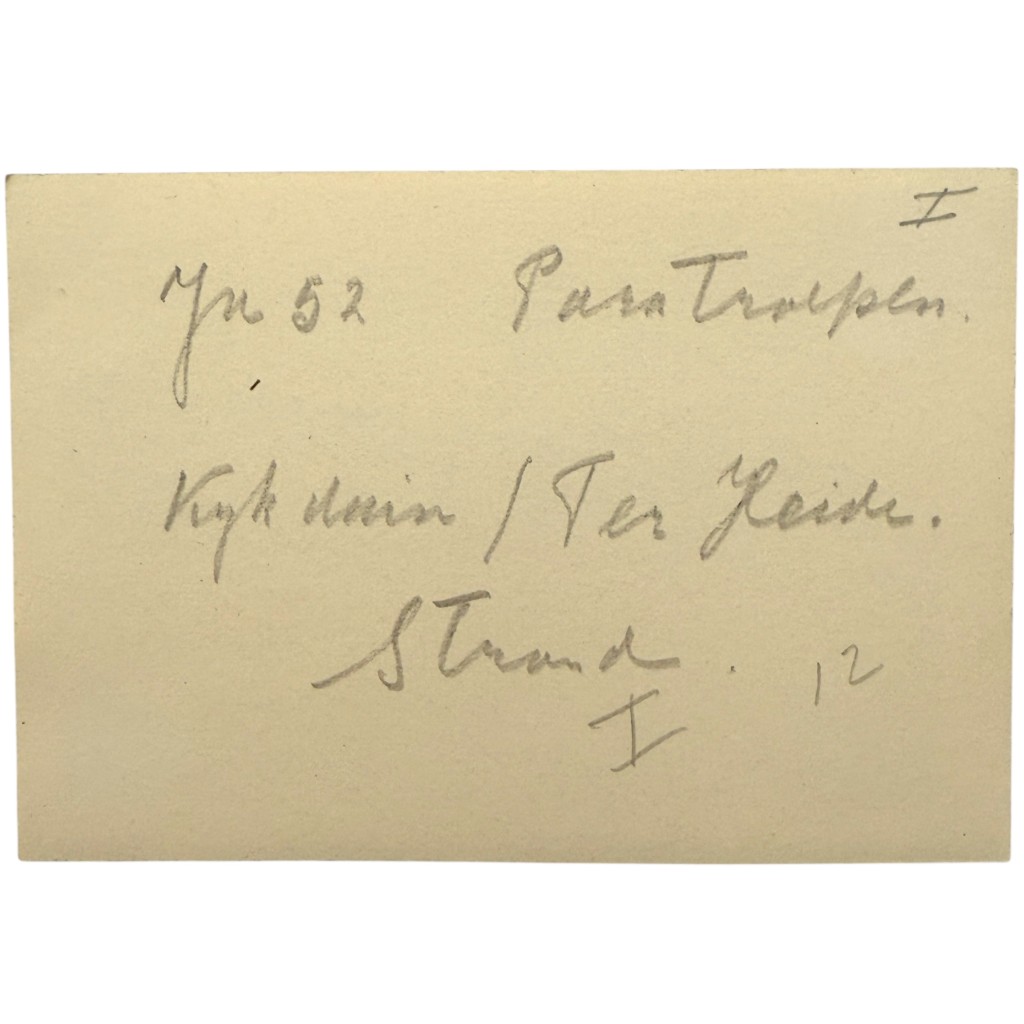 I
Ju 52 Para Troepen.
Kykduin / Ter Heide.
Strand. 12
I